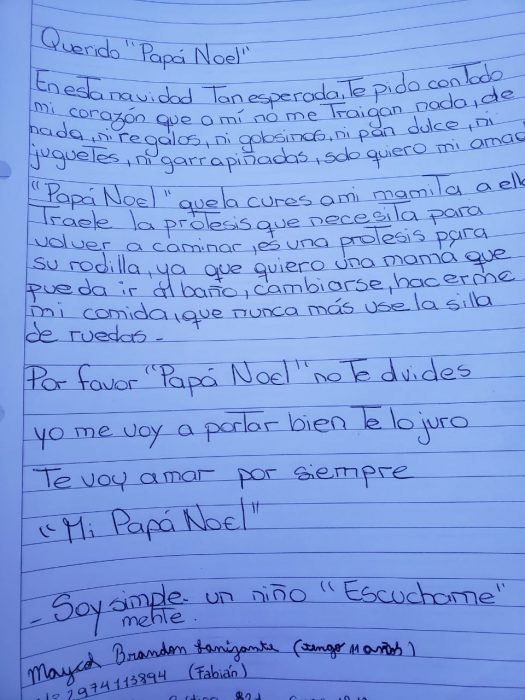 Querido "Papá Noel"
En esta navidad Tan esperada, Te pido con Todo
mi corazón que a mí no me Traigan nada, de
nada, ni regalos, ni golosinas, ni pan dulce, ni
juguetes, ni garrapiñadas, solo quiero mi
"Papá Noel" que la cures a mi mamita a ella
Traele la protesis que necesita para
volver a caminar, es una protesis para
su rodilla, ya que quiero una mama que
pueda ir al baño, cambiarse, hacerme
mi comida, que nunca más use la silla
de ruedas -
Por favor "Papá Noel" no Te olvides
yo me voy a portar bien Te lo juro
Te voy amar por siempre
"Mi Papá Noel"
- Soy simple- un niño "Escuchame"
mente.
Brandon (tengo 11 años)
2974113894 (Fabián)